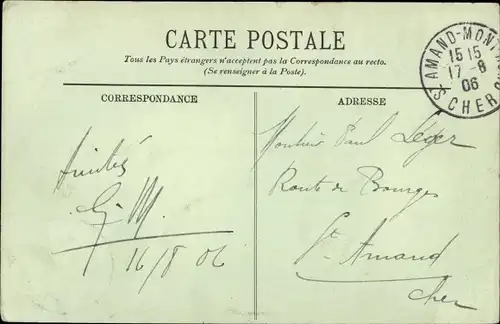 CARTE POSTALE
Tous les Pays étrangers n'acceptent pas la Correspondance au recto.
(Se renseigner à la Poste).
CORRESPONDANCE
ADRESSE
ST AMAND-MONT
15 15
17-8
06
CHER
Amitiés
G. M.
16/8 06
Monsieur Paul Léger
Route de Bourges
St Amand
Cher